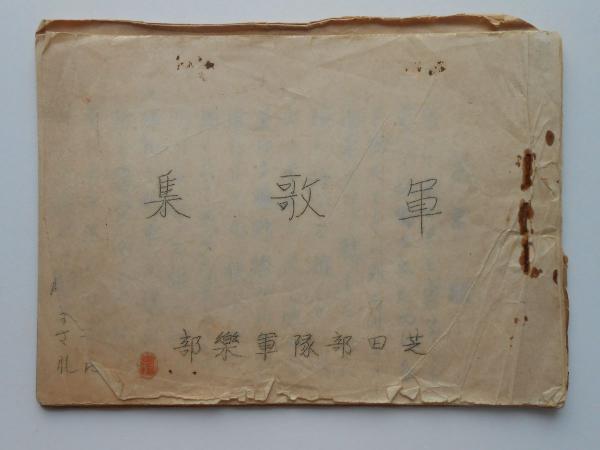 軍歌集
芝田部隊軍樂部